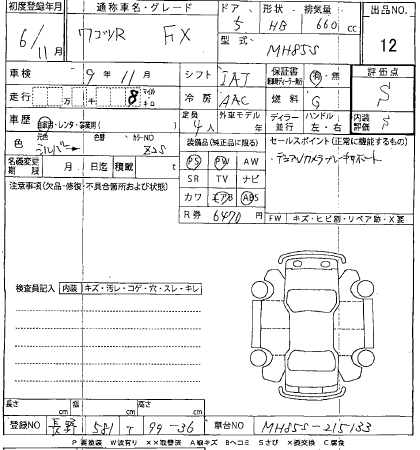 初度登録年月 通称車名・グレード ドア 形状 排気量 出品NO.
6/11月 ワゴンR FX 5 HB 660cc 12
型式 MH85S
車検 9年11月 シフト IAT 保証書 有・無 評価点
走行 万 千 8 マイル キロ 冷房 AAC 燃料 G
車歴 自家用・レンタ・営業用( ) 定員 4人 外車モデル 年 ディーラー 並行 ハンドル 左・右 内装評価
色 元色 シルバー 色替 カラーNO Z2S 装備品(純正品に限る) セールスポイント(正常に機能するもの)
名義変更期限 月 日迄 積載 PS PW AW ・デュアルカメラブレーキサポート
注意事項(欠品・修復・不具合箇所および状態) SR TV ナビ
カワ エアB ABS
R券 6470円 FW キズ・ヒビ割・リペア跡・X要
検査員記入 内装 キズ・汚レ・コゲ・穴・スレ・キレ
長さ cm 幅 cm 高さ cm
登録NO 長野 581 て 99-36 車台NO MH85S-215133
P 要塗装 W波有り ××取替済 A線キズ Bヘコミ Sさび ×要交換 C腐食